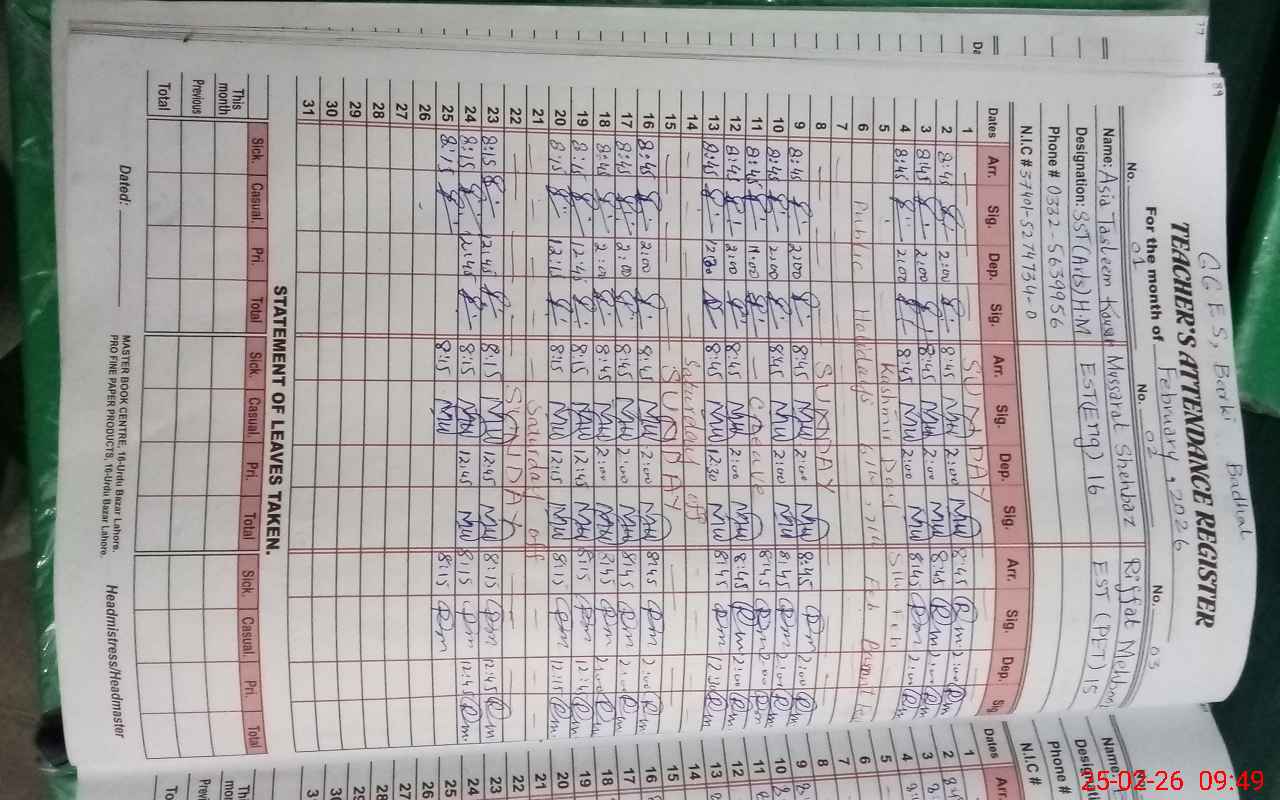 89
G G E S, Barki Badhal
TEACHER'S ATTENDANCE REGISTER
For the month of February, 2026
No. 01 No. 02 No. 03
Name: Asia Tasleem Kausar Mussarat Shehbaz Riffat Mehboob
Designation: SST (Arts) H.M EST (Eng) 16 EST (PET) 15
Phone # 0332-5639956
N.I.C # 37401-5274734-0
Dates Arr. Sig. Dep. Sig. Arr. Sig. Dep. Sig. Arr. Sig. Dep. Sig
1 — SUNDAY —
2 8:45 2:00 8:45 MW 2:00 MW 8:45 Rm 2:00 Rm
3 8:45 2:00 8:45 MW 2:00 MW 8:45 Rm 2:00 Rm
4 8:45 2:00 8:45 MW 2:00 MW 8:45 Rm 2:00 Rm
5 — Kashmir Day 5th Feb
6 Public Holidays 6th, 7th Feb
7
8 — SUNDAY —
9 8:45 2:00 8:45 MW 2:00 MW 8:45 Rm 2:00 Rm
10 8:45 2:00 8:45 MW 2:00 MW 8:45 Rm 2:00 Rm
11 8:45 11:00 — C/Leave — 8:45 Rm 2:00 Rm
12 8:45 2:00 8:45 MW 2:00 MW 8:45 Rm 2:00 Rm
13 8:45 12:30 8:45 MW 12:30 MW 8:45 Rm 12:30 Rm
14 — Saturday off —
15 — SUNDAY —
16 8:45 2:00 8:45 MW 2:00 MW 8:45 Rm 2:00 Rm
17 8:45 2:00 8:45 MW 2:00 MW 8:45 Rm 2:00 Rm
18 8:45 2:00 8:45 MW 2:00 MW 8:45 Rm 2:00 Rm
19 8:15 12:45 8:15 MW 12:45 MW 8:15 Rm 12:45 Rm
20 8:15 12:15 8:15 MW 12:15 MW 8:15 Rm 12:15 Rm
21 — Saturday off —
22 — SUNDAY —
23 8:15 12:45 8:15 MW 12:45 MW 8:15 Rm 12:45 Rm
24 8:15 12:45 8:15 MW 12:45 MW 8:15 Rm 12:45 Rm
25 8:15 8:15 MW 8:15 Rm
26
27
28
29
30
31
STATEMENT OF LEAVES TAKEN.
Sick. Casual. Pri. Total Sick. Casual. Pri. Total Sick. Casual. Pri. Total
This month
Previous
Total
Dated:
MASTER BOOK CENTRE, 16-Urdu Bazar Lahore.
PRO FINE PAPER PRODUCTS, 16-Urdu Bazar Lahore.
Headmistress/Headmaster
25-02-26 09:49